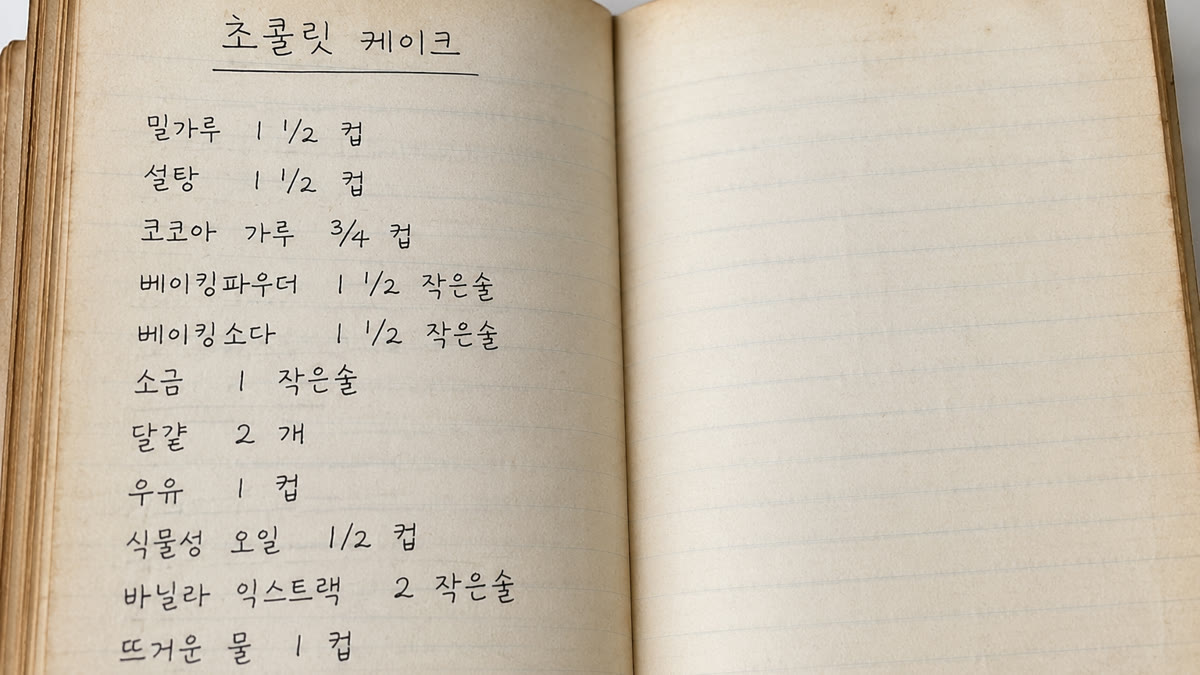 초콜릿 케이크
밀가루 1 1/2 컵
설탕 1 1/2 컵
코코아 가루 3/4 컵
베이킹파우더 1 1/2 작은술
베이킹소다 1 1/2 작은술
소금 1 작은술
달걀 2 개
우유 1 컵
식물성 오일 1/2 컵
바닐라 익스트랙 2 작은술
뜨거운 물 1 컵